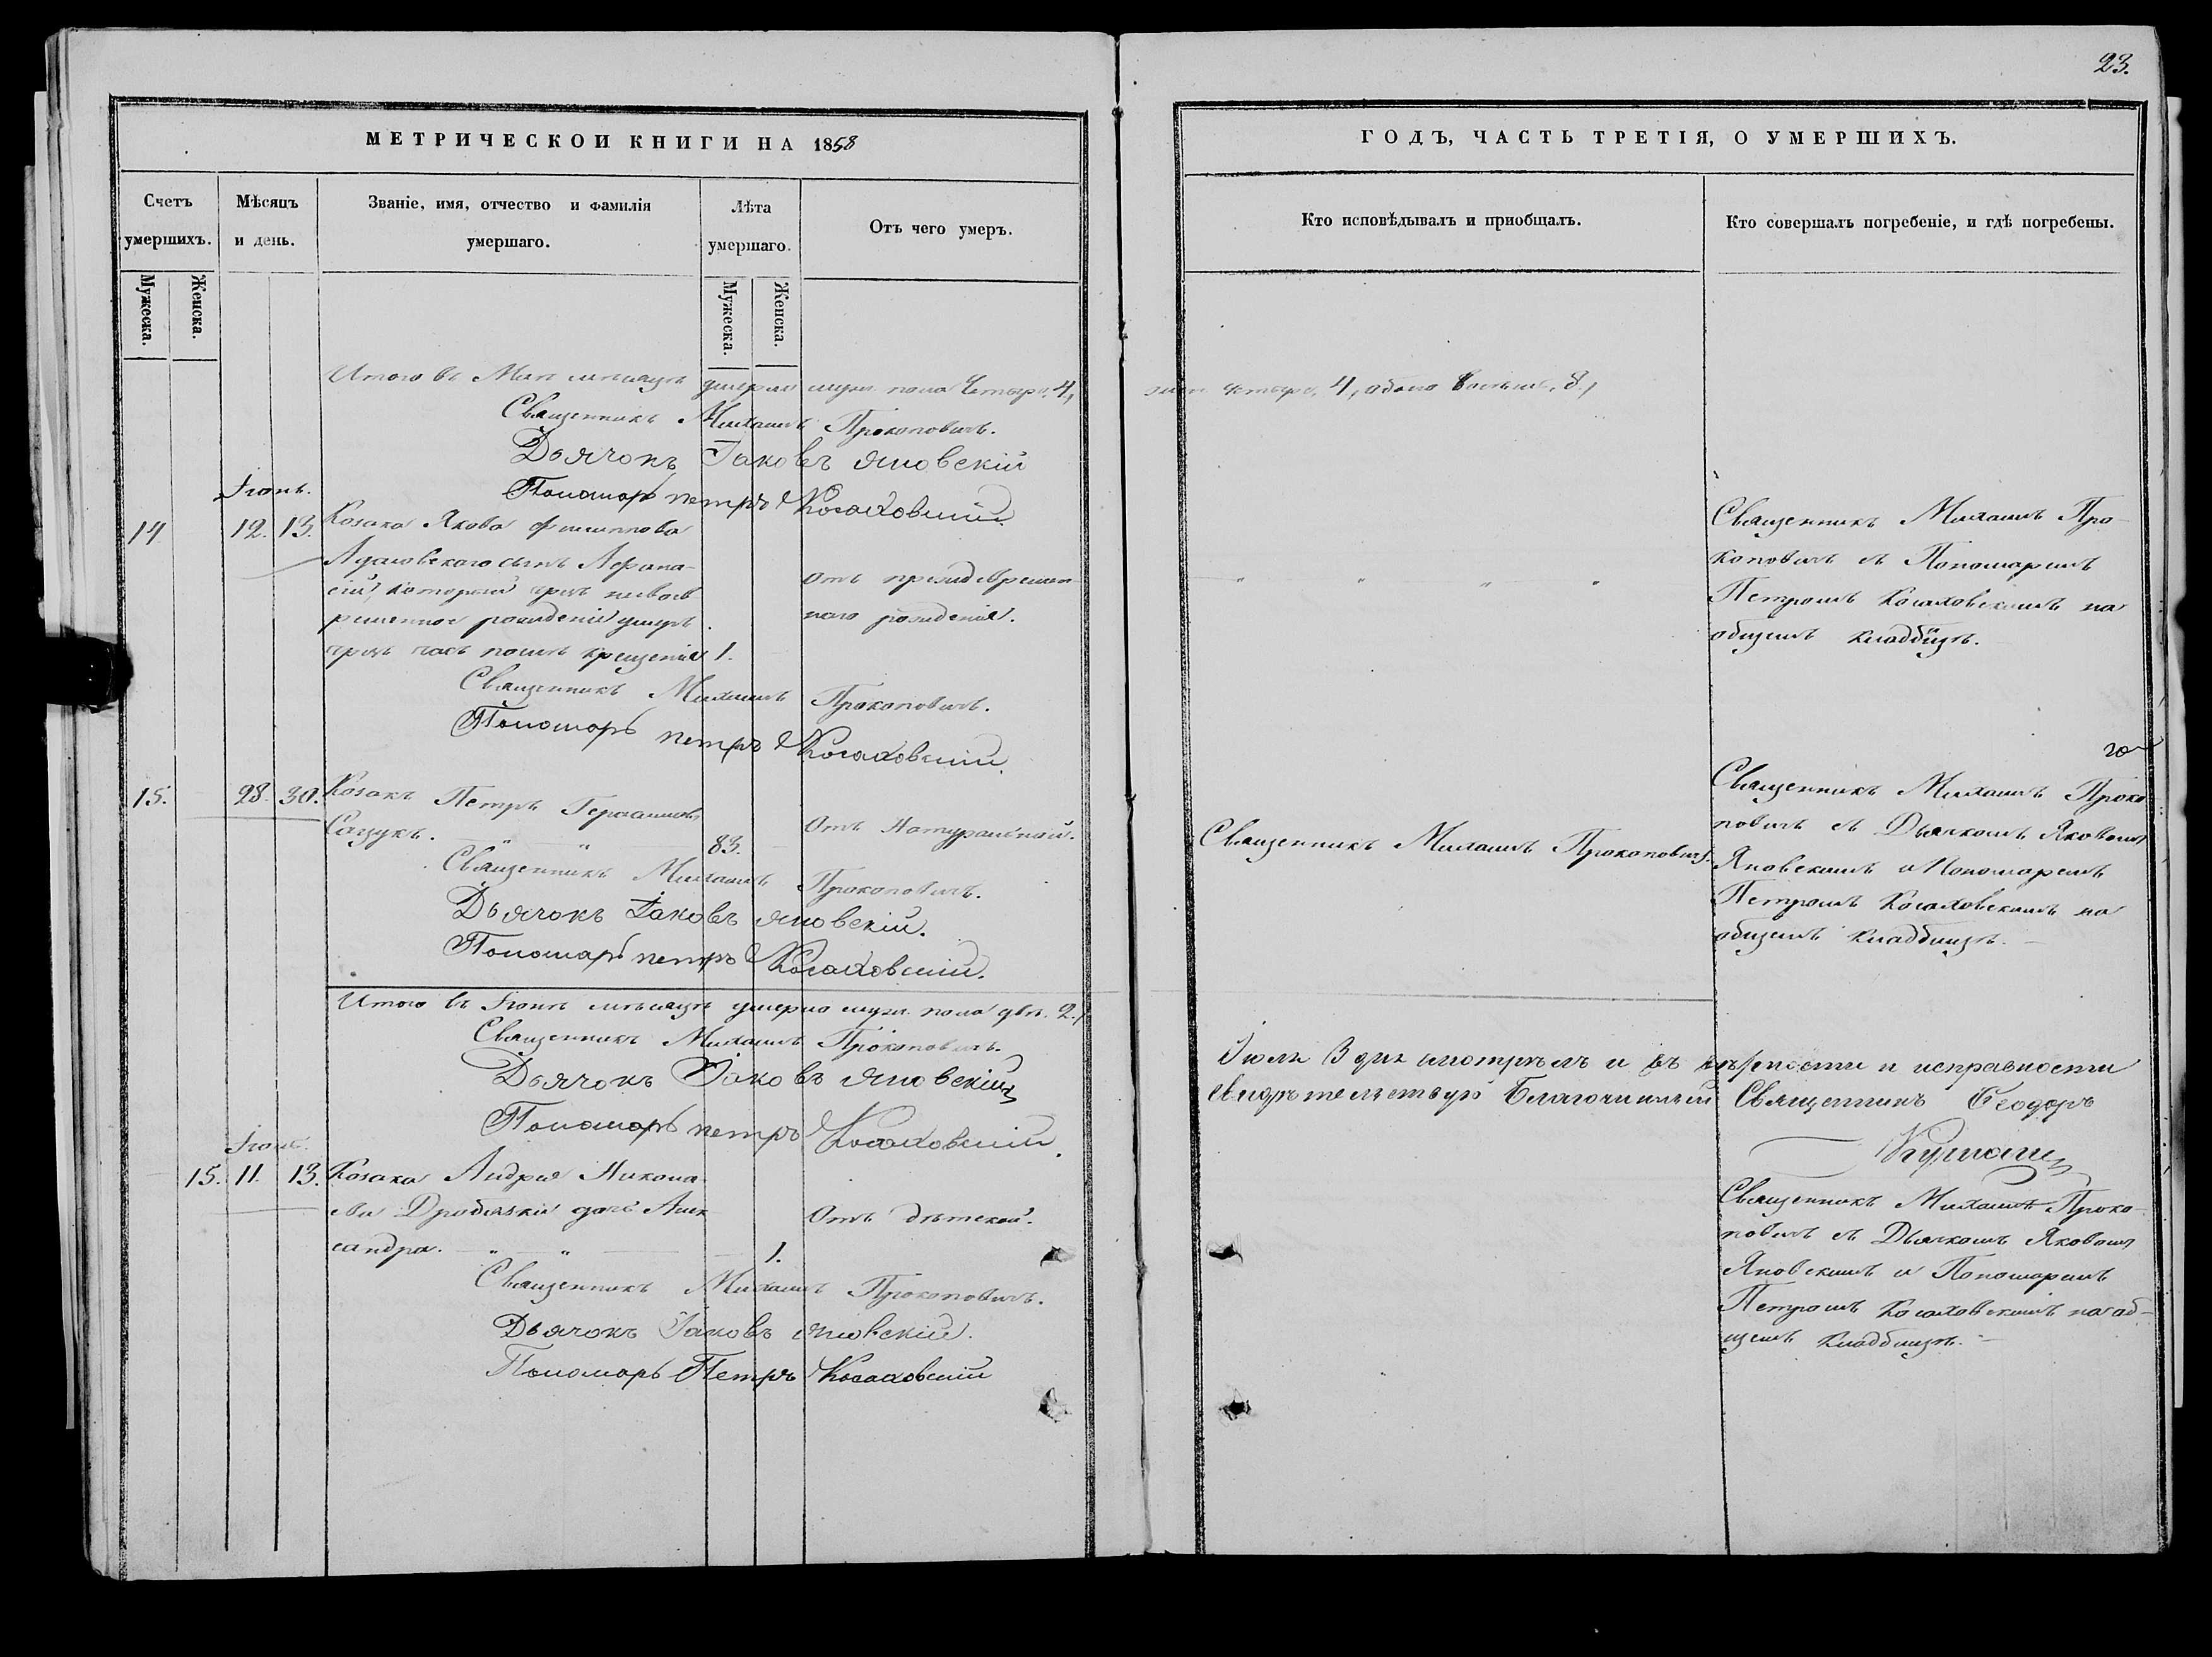 23.
МЕТРИЧЕСКОЙ КНИГИ НА 1858
ГОДЪ, ЧАСТЬ ТРЕТІЯ, О УМЕРШИХЪ.
Счетъ умершихъ.
Мѣсяцъ и день.
Званіе, имя, отчество и фамилія умершаго.
Лѣта умершаго.
Отъ чего умеръ.
Кто исповѣдывалъ и приобщалъ.
Кто совершалъ погребеніе, и гдѣ погребены.
Мужеска.
Женска.
Мужеска.
Женска.
Итого въ Маѣ мѣсяцѣ умерло муж. пола Четыре, 4, жен. четыре, 4, обоего восемь, 8,
Священникъ Михаилъ Прокоповичъ.
Дьячокъ Іаковъ Яновскій
Пономарь Петръ Косаковскій
Іюнь.
14 12. 13. Козака Якова Филиппова
сынъ Афана-
сій, который чрезъ
рожденія умеръ
чрезъ часъ послѣ крещенія 1.
Отъ преждевремен-
наго рожденія.
Священникъ Михаилъ Про-
коповичъ съ Пономаремъ
Петромъ Косаковскимъ на
общемъ кладбищѣ.
Священникъ Михаилъ Прокоповичъ.
Пономарь Петръ Косаковскій.
15. 28. 30. Козакъ Петръ
83.
Отъ Натуральной.
Священникъ Михаилъ Прокоповичъ.
Священникъ Михаилъ Проко-
повичъ съ Дьячкомъ Яковомъ
Яновскимъ и Пономаремъ
Петромъ Косаковскимъ на
общемъ кладбищѣ.
Священникъ Михаилъ Прокоповичъ.
Дьячокъ Іаковъ Яновскій.
Пономарь Петръ Косаковскій.
Итого въ Іюнѣ мѣсяцѣ умерло муж. пола два. 2.
Священникъ Михаилъ Прокоповичъ.
Дьячокъ Іаковъ Яновскій
Пономарь Петръ Косаковскій.
Іюля 3 дня смотрѣлъ и въ вѣрности и исправности
свидѣтельствую Благочинный Священникъ Ѳеодоръ
Іюнь.
15. 11. 13. Козака Андрея Никола-
ева дочь Алек-
сандра. 1.
Отъ дѣтской.
Священникъ Михаилъ Проко-
повичъ съ Дьячкомъ Яковомъ
Яновскимъ и Пономаремъ
Петромъ Косаковскимъ на об-
щемъ кладбищѣ.
Священникъ Михаилъ Прокоповичъ.
Дьячокъ Іаковъ Яновскій.
Пономарь Петръ Косаковскій